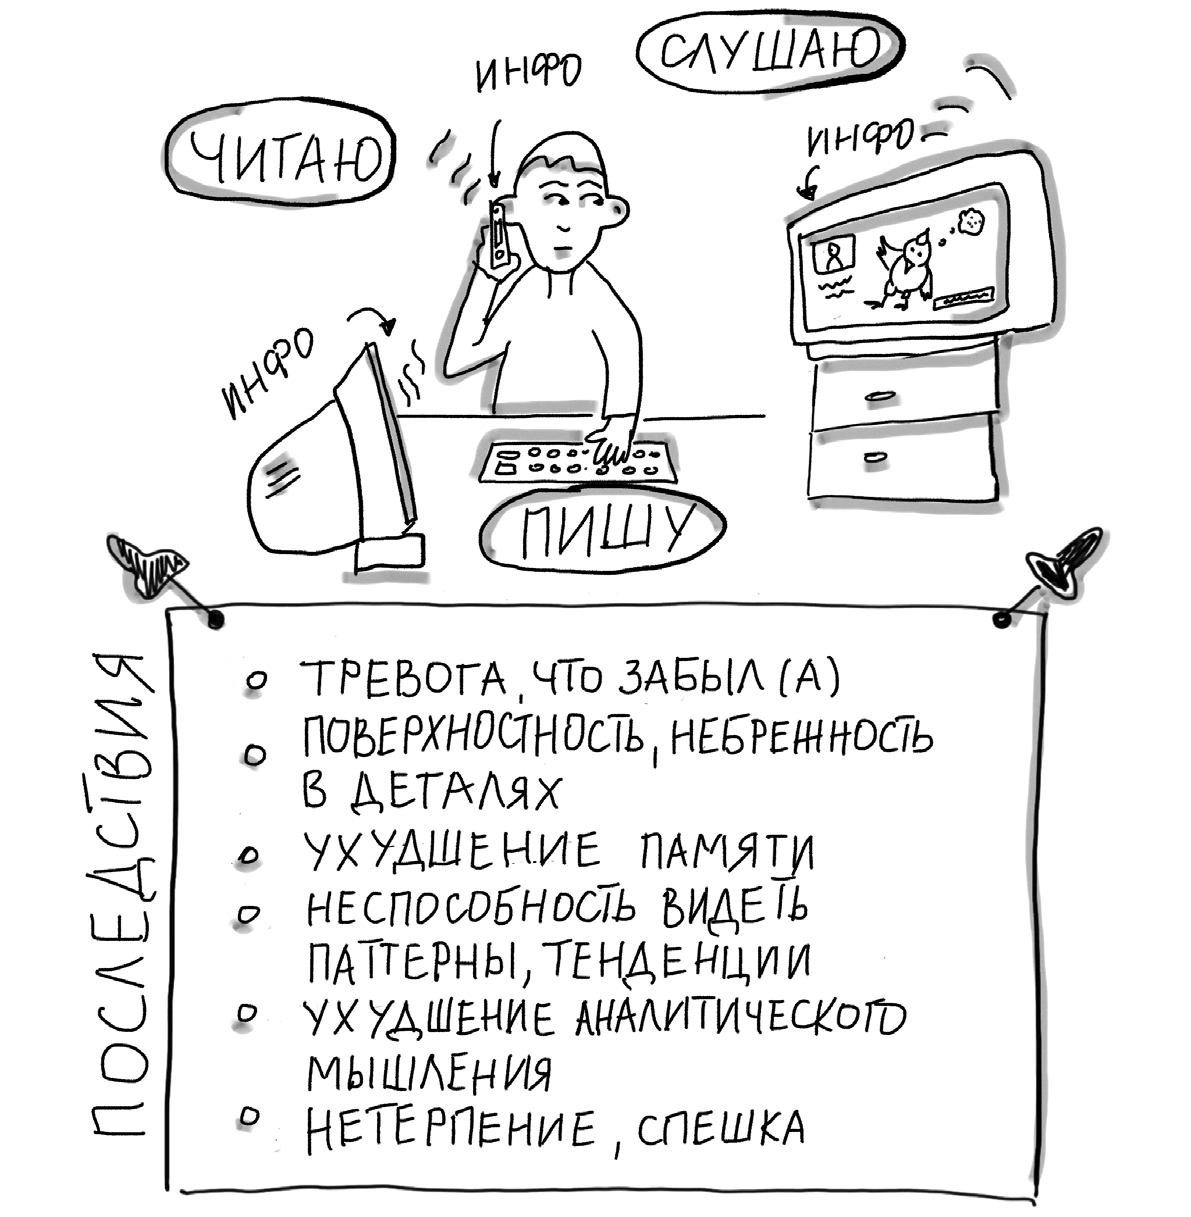 СЛУШАЮ
ИНФО
ЧИТАЮ
ИНФО
ИНФО
ПИШУ
ПОСЛЕДСТВИЯ
ТРЕВОГА, ЧТО ЗАБЫЛ(А)
ПОВЕРХНОСТНОСТЬ, НЕБРЕЖНОСТЬ
В ДЕТАЛЯХ
УХУДШЕНИЕ ПАМЯТИ
НЕСПОСОБНОСТЬ ВИДЕТЬ
ПАТТЕРНЫ, ТЕНДЕНЦИИ
УХУДШЕНИЕ АНАЛИТИЧЕСКОГО
МЫШЛЕНИЯ
НЕТЕРПЕНИЕ, СПЕШКА